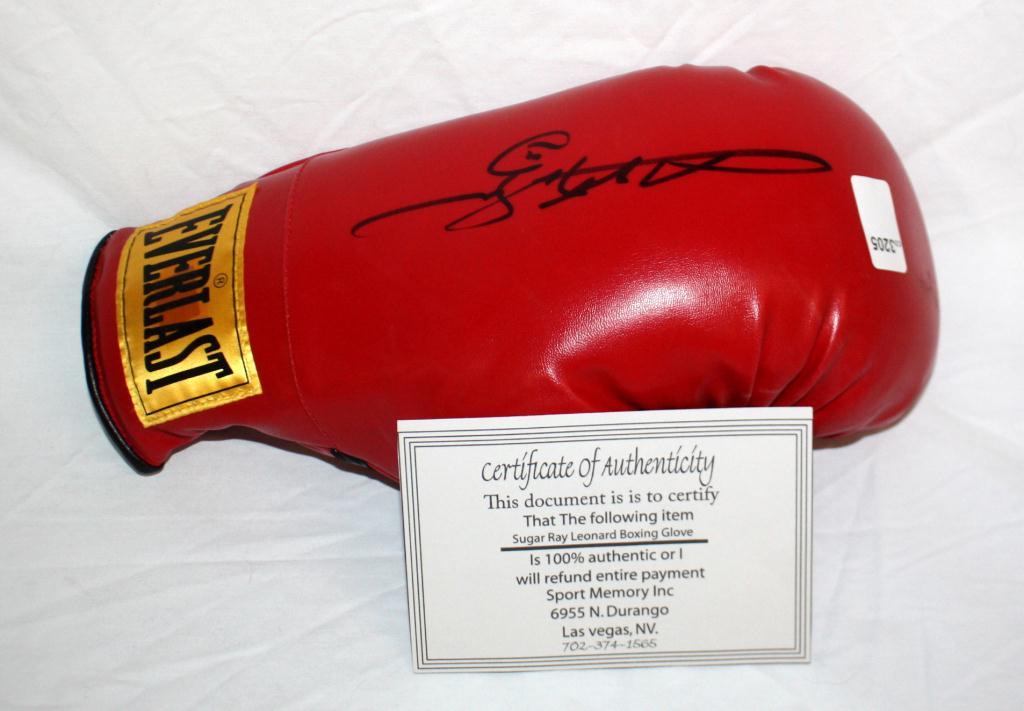 EVERLAST
®
3205
Certificate Of Authenticity
This document is is to certify
That The following item
Sugar Ray Leonard Boxing Glove
Is 100% authentic or I
will refund entire payment
Sport Memory Inc
6955 N. Durango
Las vegas, NV.
702-374-1565